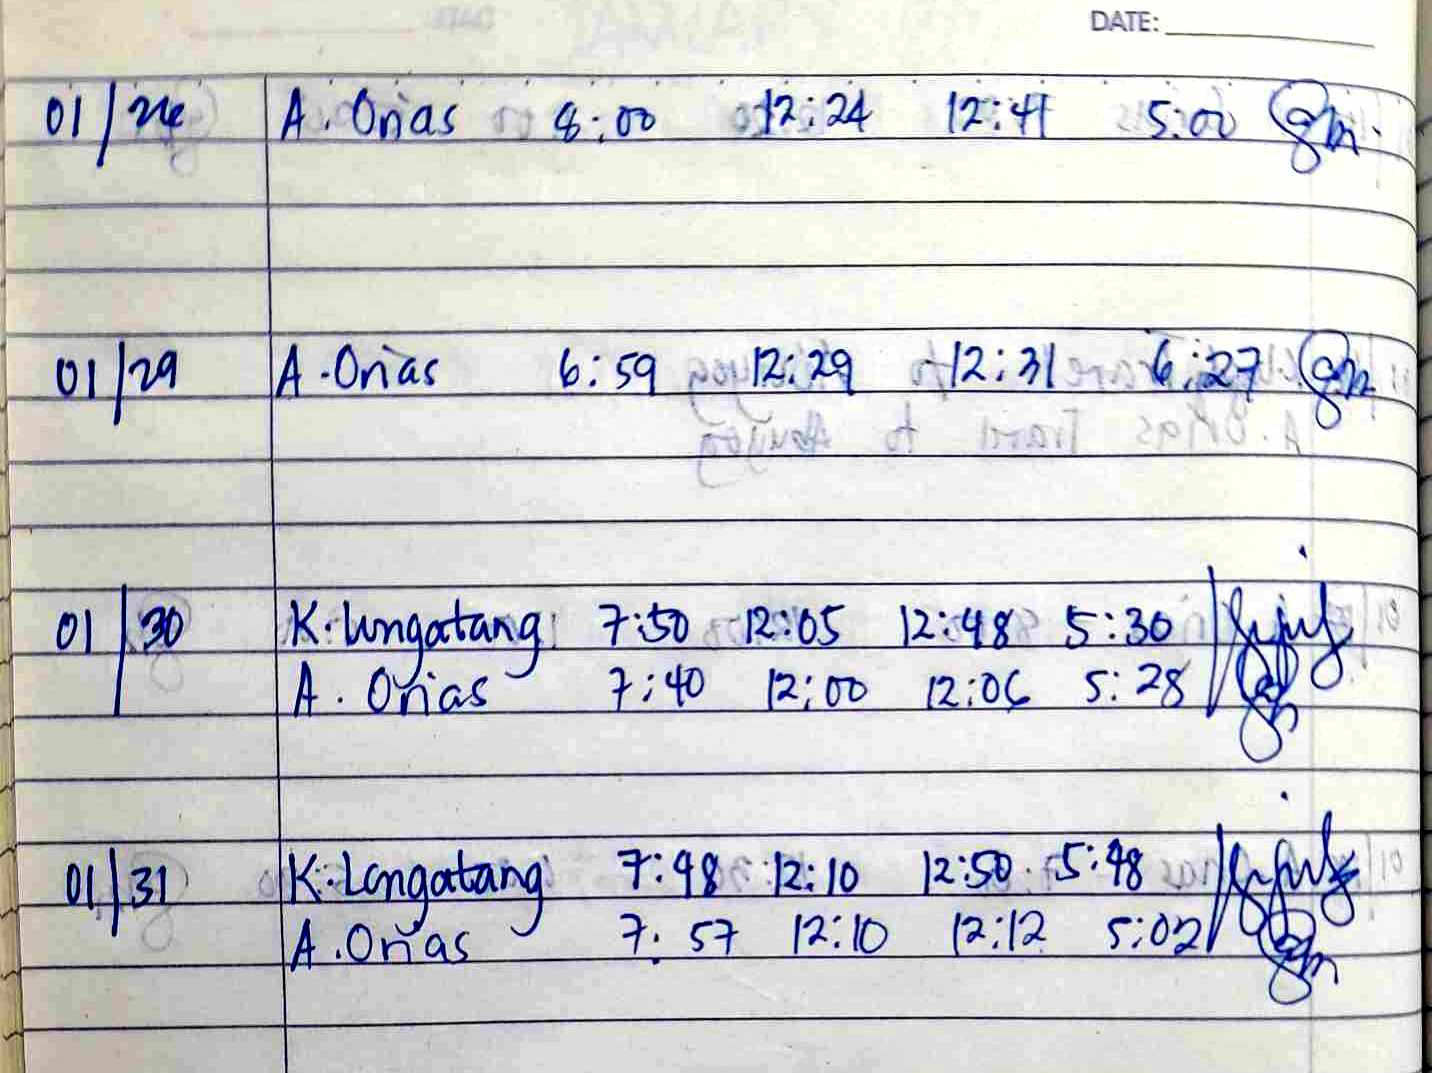 DATE:
01/26 A. Orias 8:00 12:24 12:41 5:00
01/29 A. Orias 6:59 12:29 12:31 6:27
01/30 K. Longatang 7:50 12:05 12:48 5:30
A. Orias 7:40 12:00 12:06 5:28
01/31 K. Longatang 7:48 12:10 12:50 5:48
A. Orias 7:57 12:10 12:12 5:02